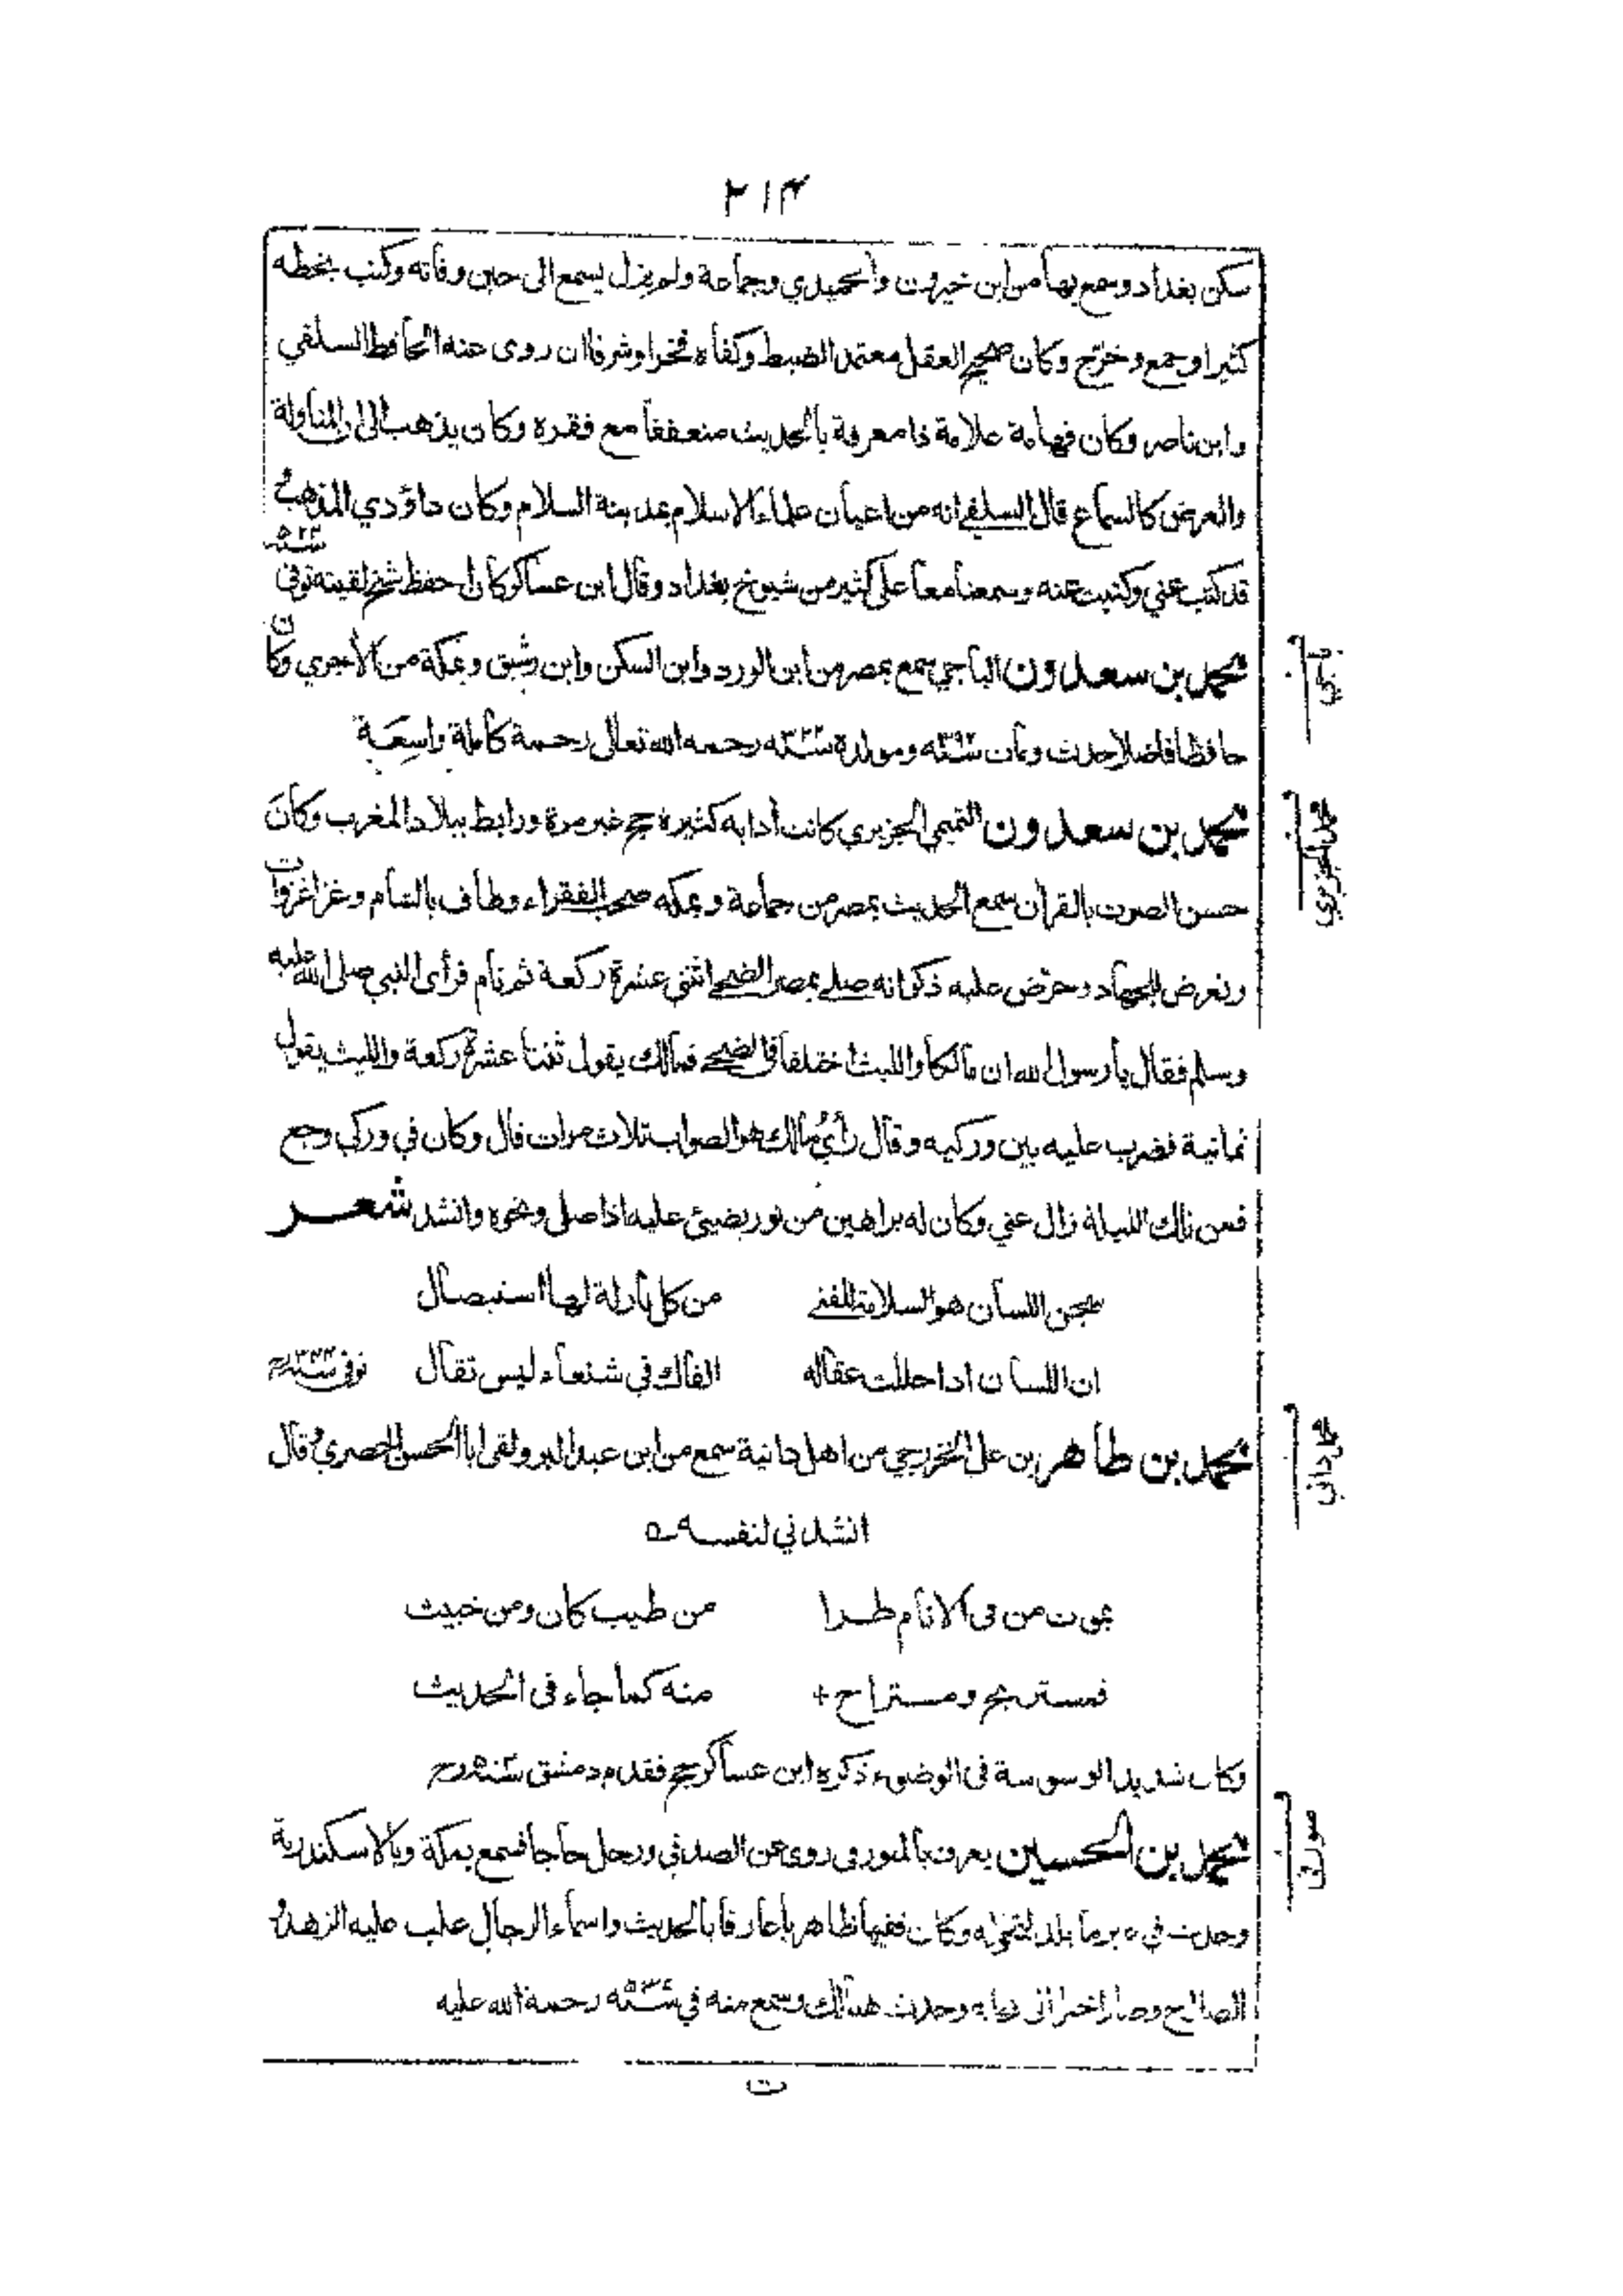 ٢١٣
سكن بغداد وسمع بها من ابن خيرون والحميدي وجماعة ولم يزل يسمع الى حين وفاته وكتب بخطه
كثيرا وجمع وخرّج وكان صحيح العقل معتمد الضبط وكفاه فخرا وشرفا ان روى عنه الحافظ السلفي
وابن ناصر وكان فهامة علامة ذا معرفة بالحديث متعففا مع فقره وكان يذهب الى ان المناولة
والعرض كالسماع قال السلفي انه من اعيان علماء الاسلام بمدينة السلام وكان داؤدي المذهب
قد كتب عني وكتبت عنه وسمعنا معا على كثير من شيوخ بغداد وقال ابن عساكر كان احفظ شيخ لقيته توفى سنة ٥٢٣
محمد بن سعدون الباجي سمع بمصر من ابن الورد وابن السكن وابن رشيق وبمكة من الأجري وكان
حافظا فاضلا حدث ومات سنة ٣٩٢ ومولده رحمه الله تعالى رحمة كاملة واسِعَة
محمد بن سعدون التميمي الجزيري كانت أدابه كثيرة حج غير مرة ورابط ببلاد المغرب وكانَ
حسن الصوت بالقرأن سمع الحديث بمصر من جماعة وبمكه صحب الفقراء وطاف بالشام وغزا غزوات
وتعرض للجهاد وحرّض عليه ذكر انه صلى بمصر الضحى اثنتي عشرة ركعة ثم نام فرأى النبي صلى الله عليه
وسلم فقال يا رسول الله ان مالكا والليث اختلفا في الضحى فمالك يقول ثنتا عشرة ركعة والليث يقول
ثمانية فضرب عليه بين وركيه وقال رأيُ مالك هو الصواب ثلاث مرات قال وكان في وركي وجع
فمن تلك الليلة زال عني وكان له براهين من نور يضيئ عليه اذا صلى ونحوه وانشد شعر
سجن اللسان هو السلامة للفتى من كل نازلة لها استيصال
ان اللسان اذا حللت عقاله القاك في شنعاء ليس تقال توفى سنة
محمد بن طاهر بن علي الخزرجي من اهل دانية سمع من ابن عبد البر ولقى ابا الحسن الحصري وقال
انشدني لنفسه
يموت من فى الانام طرا من طيب كان ومن خبيث
فمستريح ومستراح + منه كما جاء فى الحديث
وكان شديد الوسوسة فى الوضوء ذكره ابن عساكر حج فقدم دمشق
محمد بن الحسين يعرف بالميورقى روى عن الصدفي ورحل حاجا فسمع بمكة وبالاسكندرية
وحدث في بلد وكان فقيها ظاهريا عارفا بالحديث واسماء الرجال غلب عليه الزهد و
الصالح وصار اخيرا الى وحدث هنالك وسمع منه في سنة ٥٣٧ رحمة الله عليه
ت
باجي
محمد الجزيري
محمد داني
ميورقى